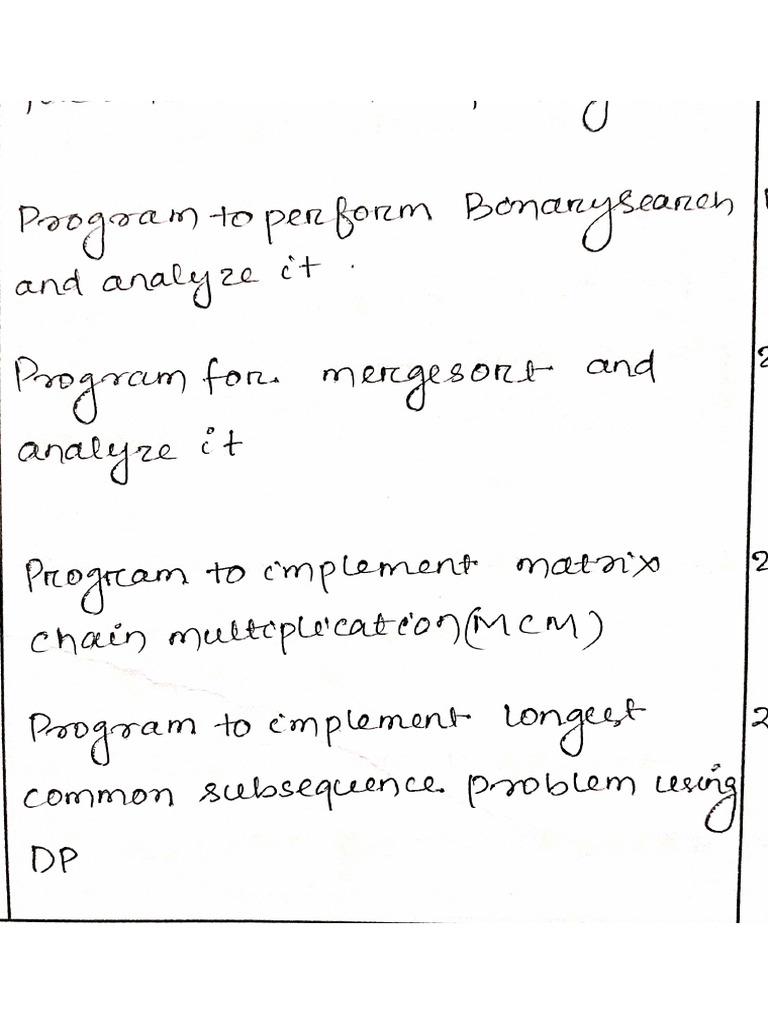 Program to perform Binarysearch
and analyze it.
Program for mergesort and
analyze it
Program to implement matrix
chain multiplication(MCM)
Program to implement longest
common subsequence problem using
DP